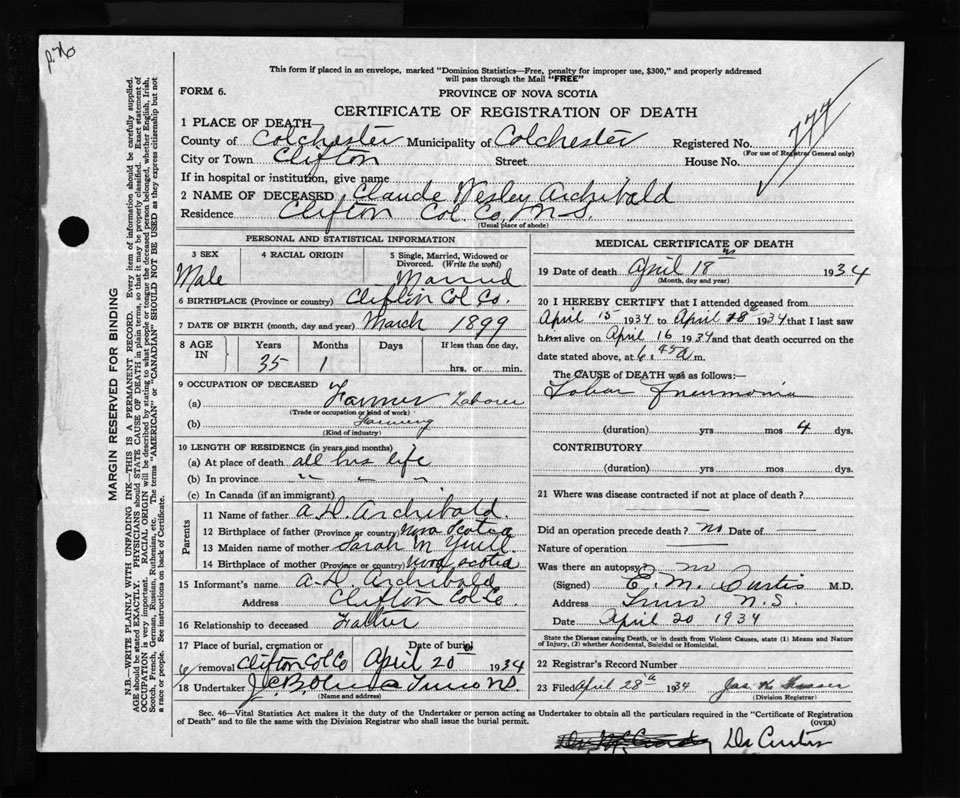 This form if placed in an envelope, marked "Dominion Statistics—Free, penalty for improper use, $300," and properly addressed
will pass through the Mail "FREE"
FORM 6.
PROVINCE OF NOVA SCOTIA
CERTIFICATE OF REGISTRATION OF DEATH
777
1 PLACE OF DEATH—
County of Colchester Municipality of Colchester Registered No.
(For use of Registrar General only)
City or Town Clifton Street House No.
If in hospital or institution, give name
2 NAME OF DECEASED Claude Wesley Archibald
Residence Clifton Col. Co, N.S.
(Usual place of abode)
PERSONAL AND STATISTICAL INFORMATION
3 SEX 4 RACIAL ORIGIN 5 Single, Married, Widowed or Divorced. (Write the word)
Male Married
6 BIRTHPLACE (Province or country) Clifton Col Co.
7 DATE OF BIRTH (month, day and year) March 1899
8 AGE IN Years Months Days If less than one day,
35 1 hrs. or min.
9 OCCUPATION OF DECEASED
(a) Farmer Laborer
(Trade or occupation or kind of work)
(b) Farming
(Kind of industry)
10 LENGTH OF RESIDENCE (in years and months)
(a) At place of death all his life
(b) In province " "
(c) In Canada (if an immigrant)
Parents
11 Name of father A. D. Archibald.
12 Birthplace of father (Province or country) Nova Scotia
13 Maiden name of mother Sarah M Yuill
14 Birthplace of mother (Province or country) Nova Scotia
15 Informant's name A. D. Archibald
Address Clifton Col Co.
16 Relationship to deceased Father
17 Place of burial, cremation or removal Clifton Col Co Date of burial April 20 1934
18 Undertaker Truro NS.
(Name and address)
MEDICAL CERTIFICATE OF DEATH
19 Date of death April 18 1934
(Month, day and year)
20 I HEREBY CERTIFY that I attended deceased from
April 15 1934 to April 18 1934 that I last saw
him alive on April 16 1934 and that death occurred on the
date stated above, at 6:45 a m.
The CAUSE of DEATH was as follows:—
Lobar Pneumonia
(duration) yrs mos 4 dys.
CONTRIBUTORY
(duration) yrs mos dys.
21 Where was disease contracted if not at place of death?
Did an operation precede death? No Date of
Nature of operation
Was there an autopsy? no
(Signed) E. M. Curtis M.D.
Address Truro N.S.
Date April 20 1934
State the Disease causing Death, or in death from Violent Causes, state (1) Means and Nature
of Injury, (2) whether Accidental, Suicidal or Homicidal.
22 Registrar's Record Number
23 Filed April 28th 1934
(Division Registrar)
Sec. 46—Vital Statistics Act makes it the duty of the Undertaker or person acting as Undertaker to obtain all the particulars required in the "Certificate of Registration
of Death" and to file the same with the Division Registrar who shall issue the burial permit.
(OVER)
Dr Curtis
MARGIN RESERVED FOR BINDING
N.B.—WRITE PLAINLY WITH UNFADING INK—THIS IS A PERMANENT RECORD. Every item of information should be carefully supplied.
AGE should be stated EXACTLY. PHYSICIANS should STATE CAUSE OF DEATH in plain terms, so that it may be properly classified. Exact statement of
OCCUPATION is very important. RACIAL ORIGIN will be described by stating to what people or tongue the deceased person belonged, whether English, Irish,
Scotch, French, German, Russian, Ruthenian, etc. The terms "AMERICAN" or "CANADIAN" SHOULD NOT BE USED as they express citizenship but not
a race or people. See instructions on back of Certificate.